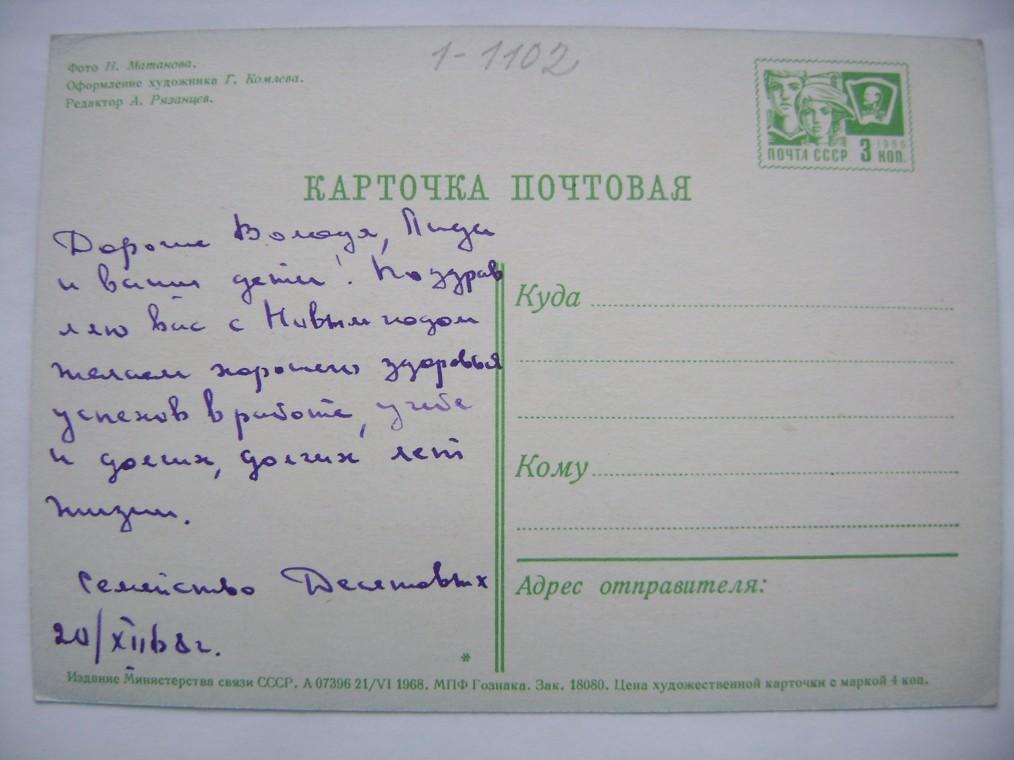 1-1102
Фото Н. Матанова.
Оформление художника Г. Комлева.
Редактор А. Рязанцев.
1966
ПОЧТА СССР 3 КОП.
КАРТОЧКА ПОЧТОВАЯ
Дорогие Володя, Лида
и ваши дети! Поздрав
ляю вас с Новым годом
желаем хорошего здоровья
успехов в работе, учебе
и долгих, долгих лет
жизни.
Семейство Десятовых
20/XII 68 г.
Куда
Кому
Адрес отправителя:
*
Издание Министерства связи СССР. А 07396 21/VI 1968. МПФ Гознака. Зак. 18080. Цена художественной карточки с маркой 4 коп.